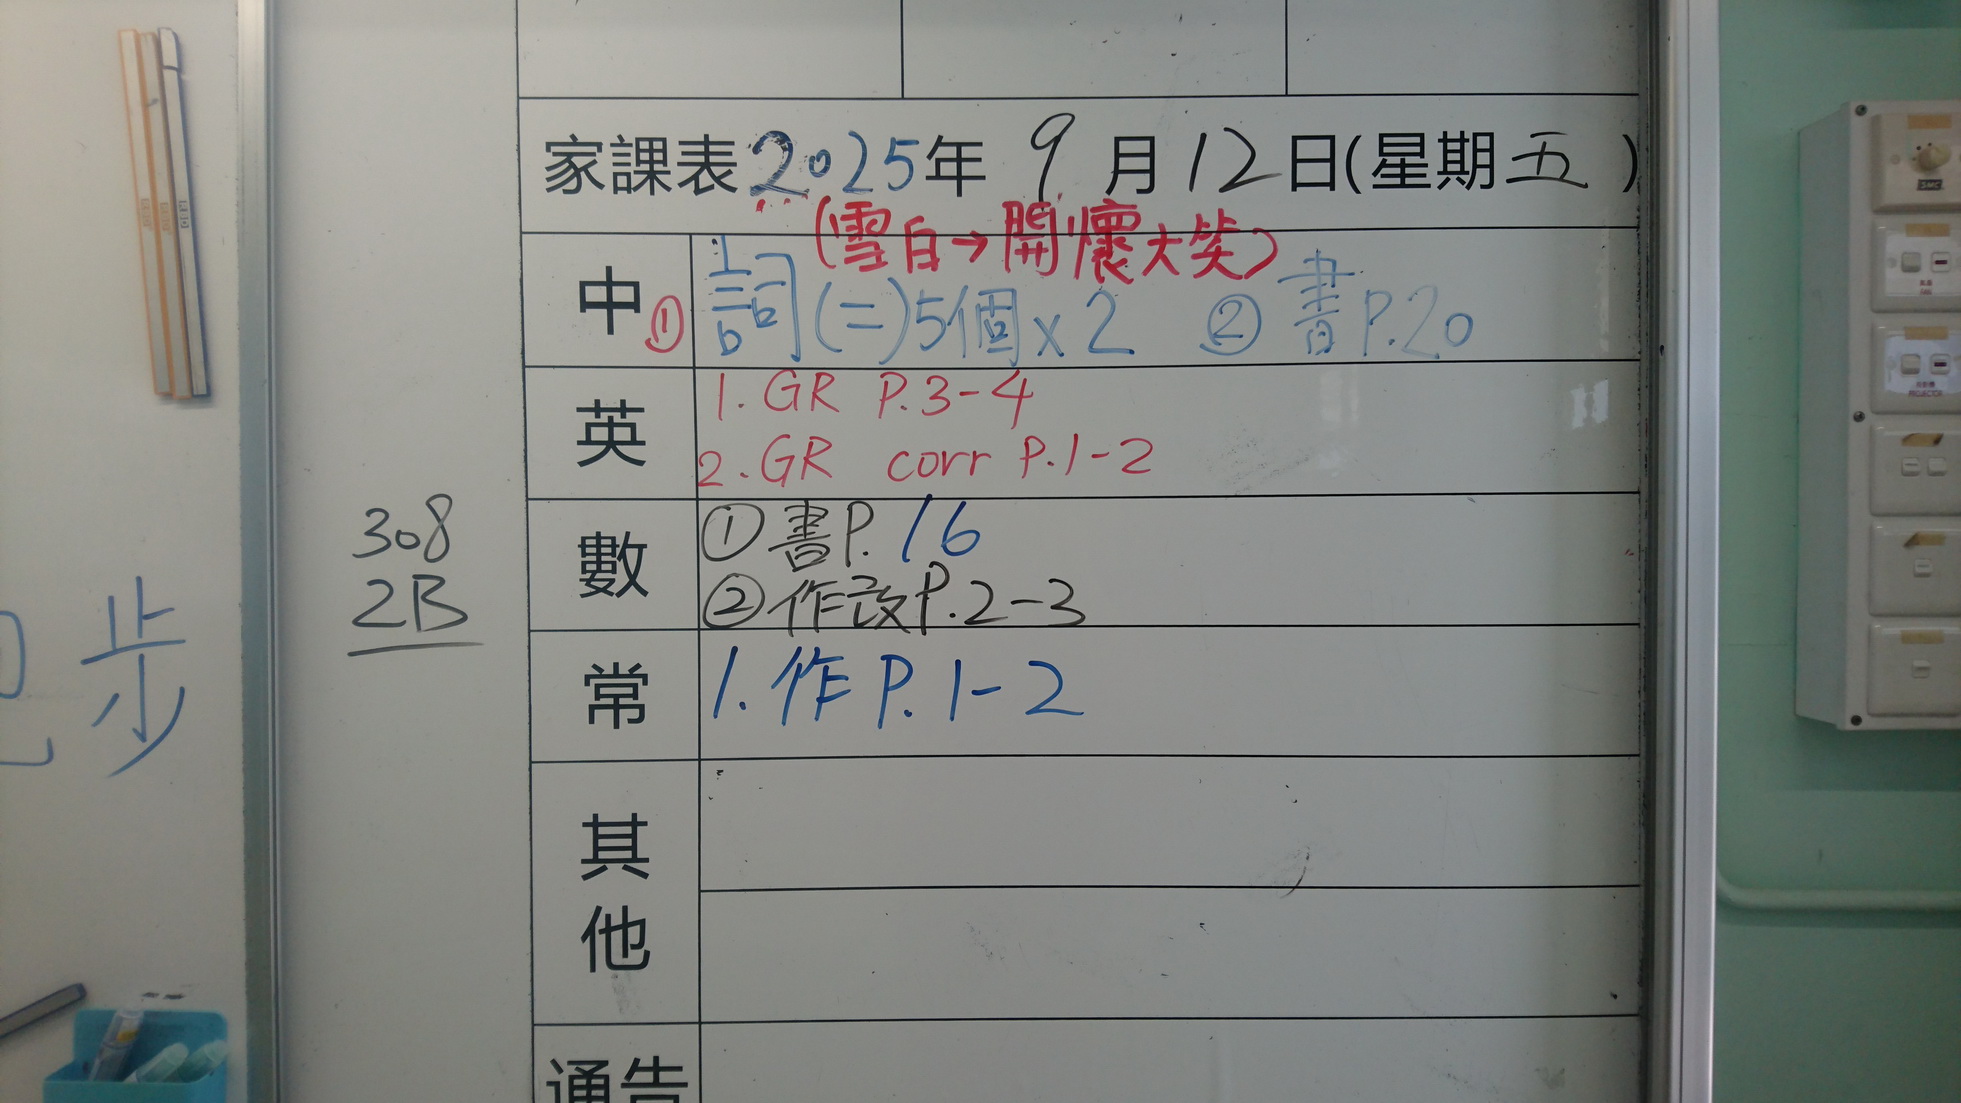 家課表2025年 9月12日(星期五)
(雪白→開懷大笑)
中 ① 詞(二)5個x2 ② 書P.20
英 1. GR P.3-4
2. GR corr P.1-2
數 ①書P.16
②作改P.2-3
常 1. 作P.1-2
其他
通告
308
2B
步
PROJECTOR